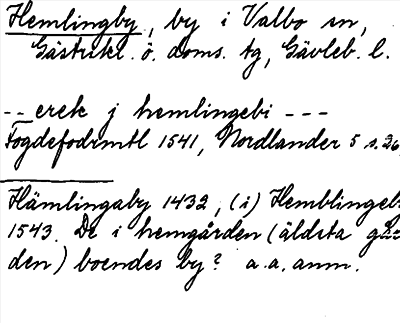 Hemlingby, by i Valbo sn,
Gästrikl. ö. doms. tg, Gävleb. l.
-- erek j hemlingebi ---
Fogdefodrmtl 1541, Nordlander 5 s. 26,
Hämlingaby 1432, (i) Hemblingeb
1543. De i hemgården (äldsta går
den) boendes by? a.a. anm.